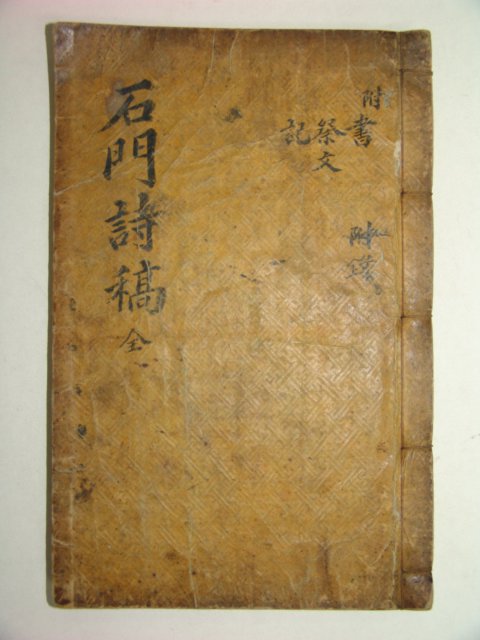 石門詩稿 全
附書
祭文
記
附